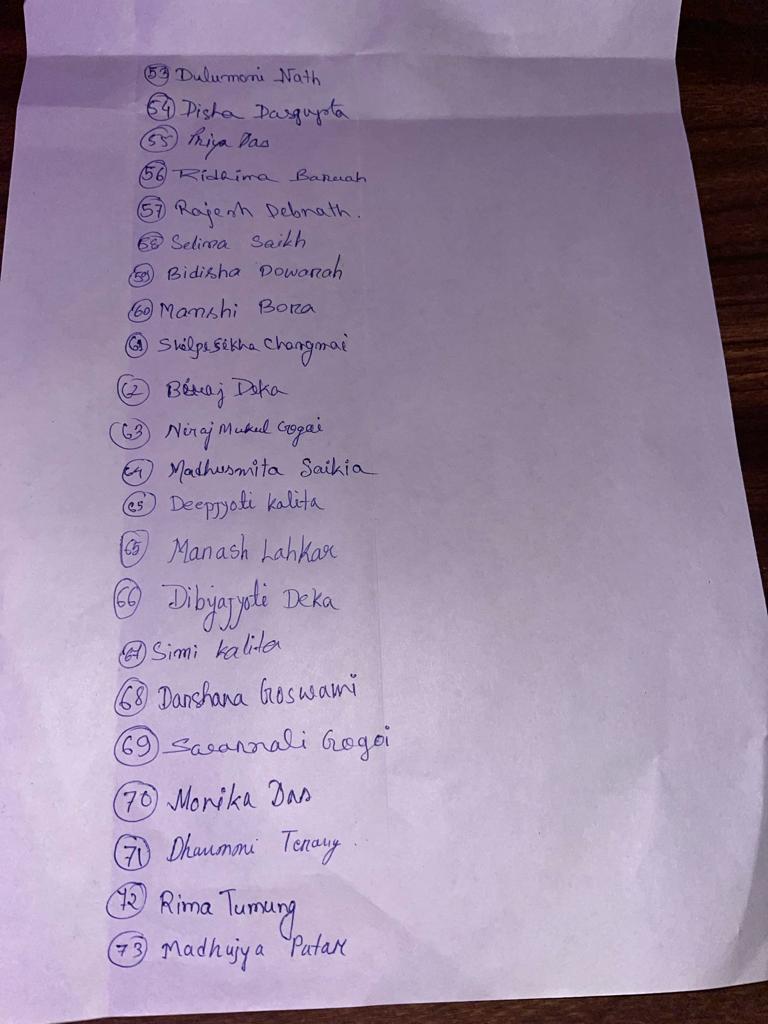 53 Dulumoni Nath
54 Disha Dasgupta
55 Priya Das
56 Ridhima Baruah
57 Rajesh Debnath.
58 Selima Saikh
59 Bidisha Dowarah
60 Manshi Bora
61 Shilpisikha Changmai
62 Deka
63 Niraj Mukul Gogoi
64 Madhusmita Saikia
65 Deepjyoti Kalita
65 Manash Lahkar
66 Dibyajyoti Deka
67 Simi Kalita
68 Darshana Goswami
69 Gogoi
70 Monika Das
71 Terang
72 Rima Tumung
73 Madhujya Patar